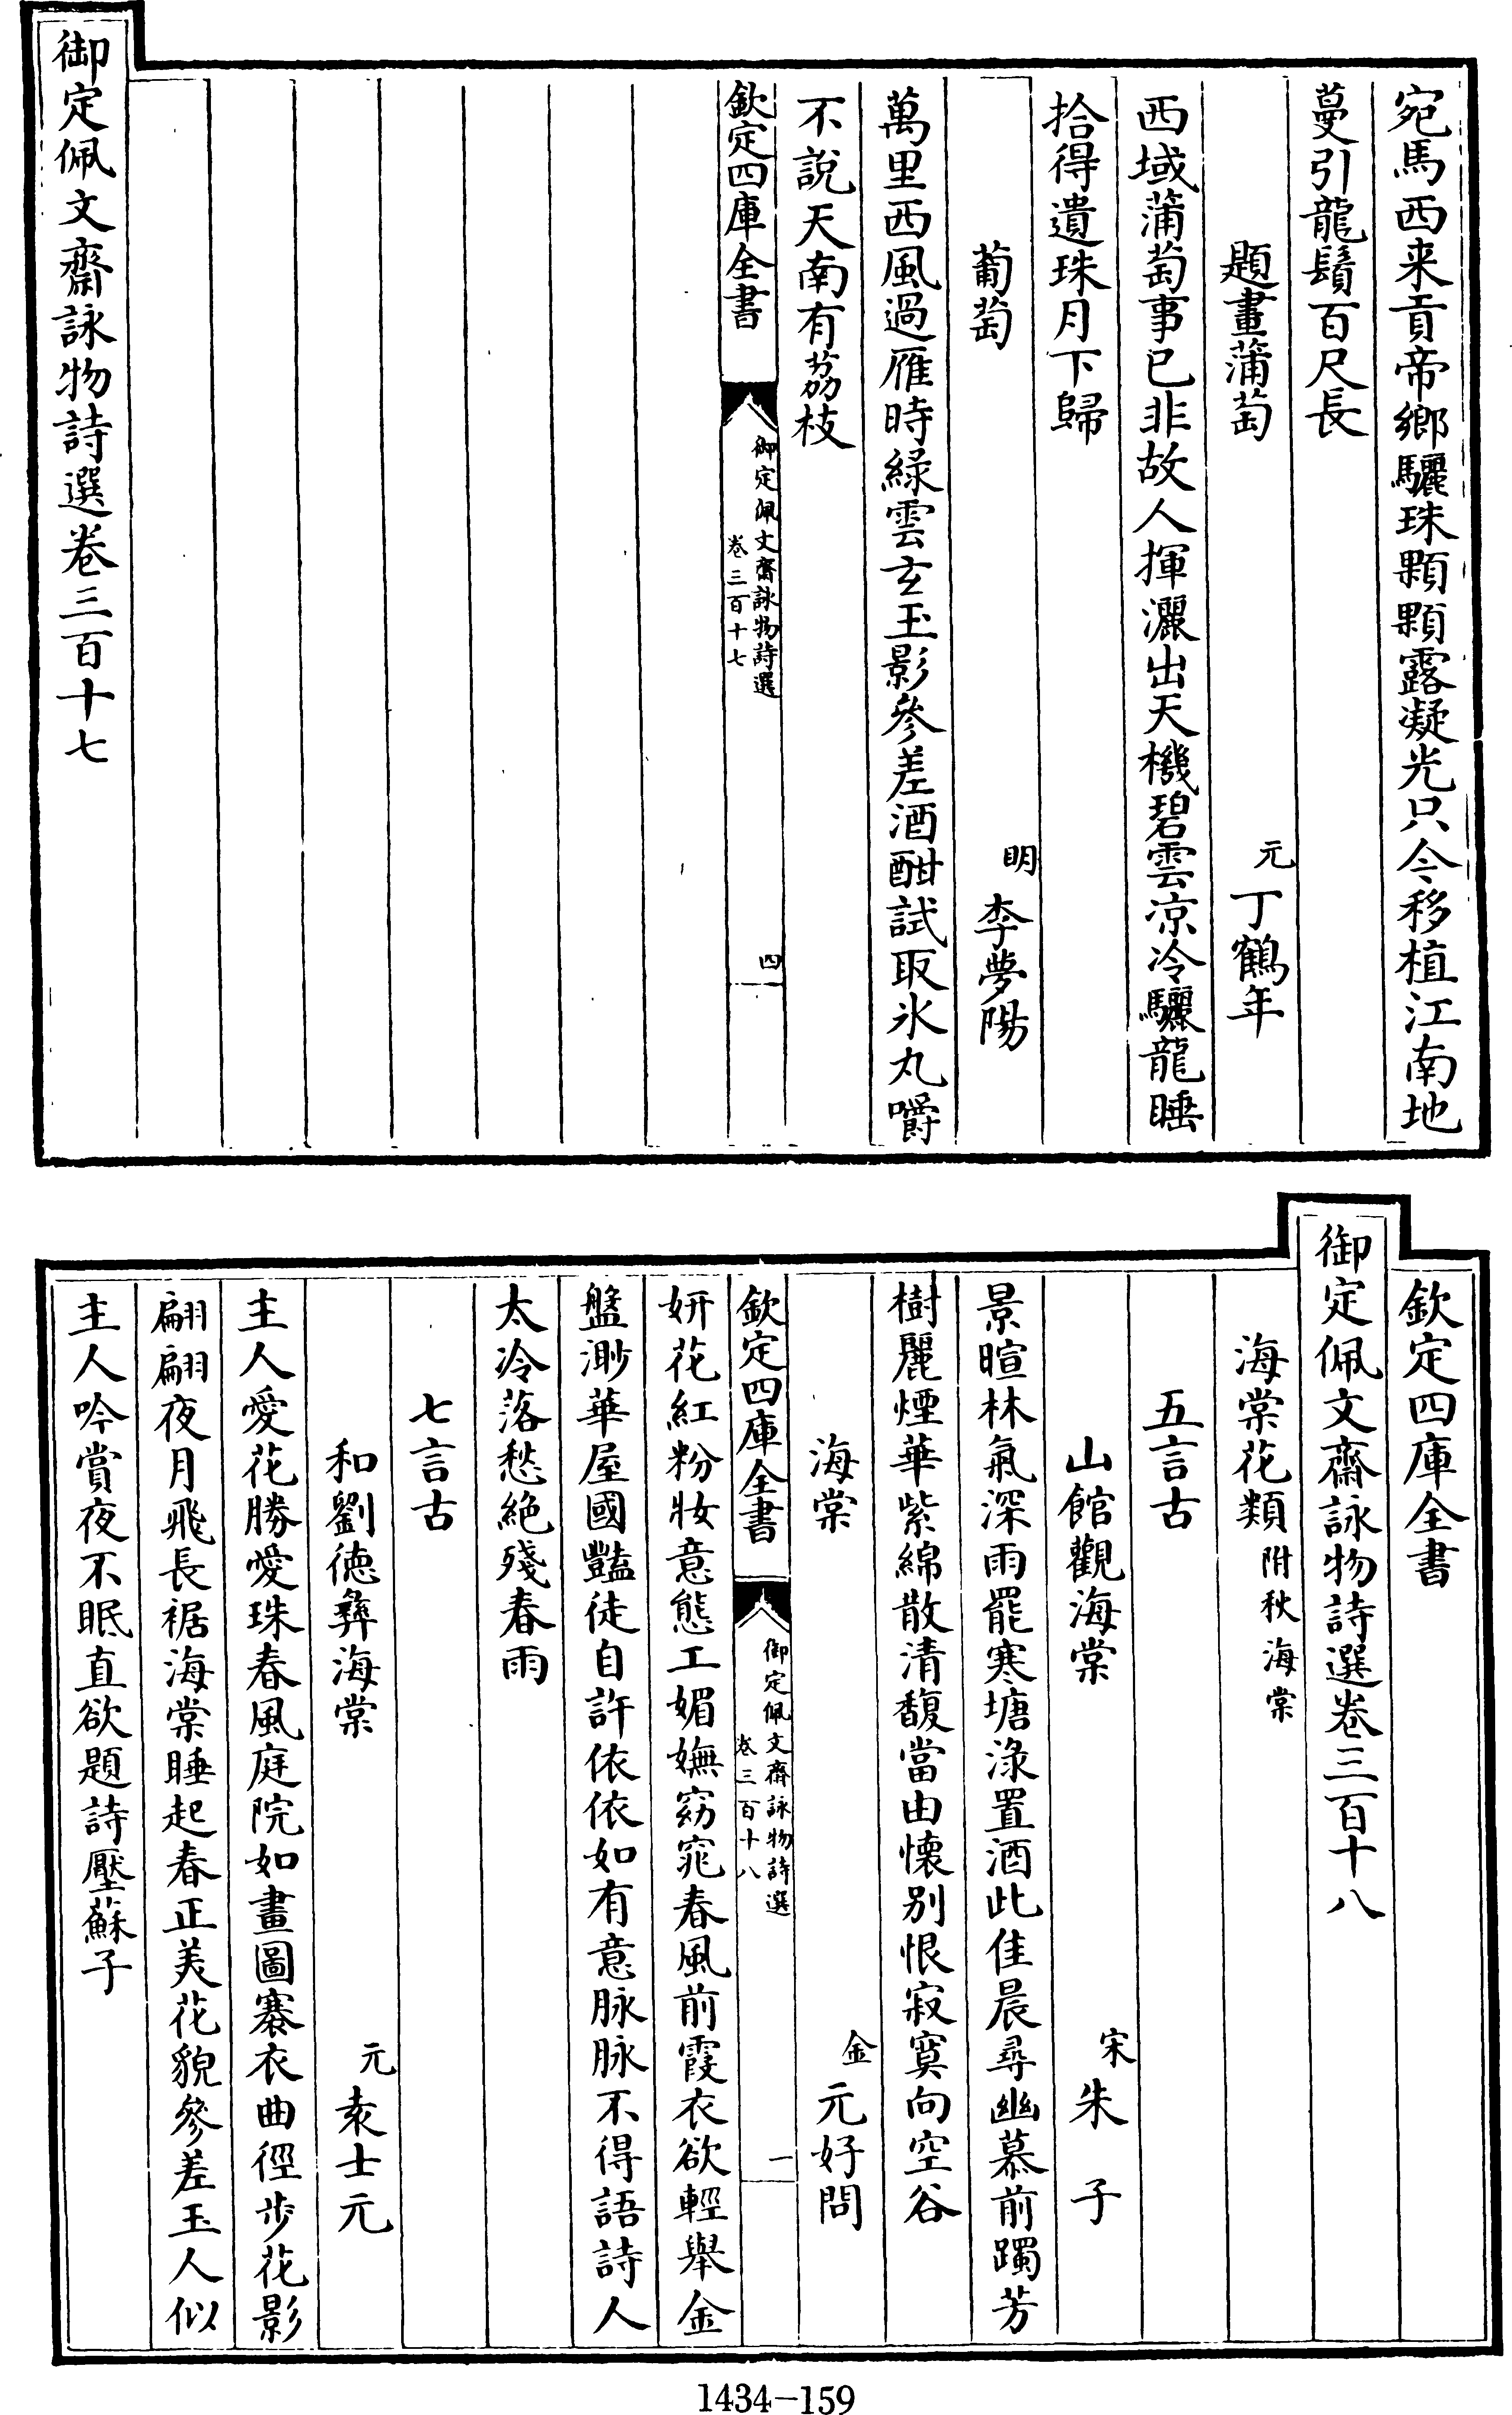 宛馬西来貢帝鄉驪珠顆顆露凝光只今移植江南地
蔓引龍鬚百尺長
題畫蒲萄　元丁鶴年
西域蒲萄事已非故人揮灑出天機碧雲凉冷驪龍睡
拾得遺珠月下歸
葡萄　明李夢陽
萬里西風過雁時緑雲玄玉影參差酒酣試取氷丸嚼
不說天南有荔枝
欽定四庫全書
御定佩文齋詠物詩選
卷三百十七
四
御定佩文齋詠物詩選卷三百十七
欽定四庫全書
御定佩文齋詠物詩選卷三百十八
海棠花類附秋海棠
五言古
山館觀海棠　宋朱子
景暄林氣深雨罷寒塘淥置酒此佳晨尋幽慕前躅芳
樹麗煙華紫綿散清馥當由懐别恨寂寞向空谷
海棠　金元好問
欽定四庫全書
御定佩文齋詠物詩選
卷三百十八
一
妍花紅粉妝意態工媚嫵窈窕春風前霞衣欲輕舉金
盤渺華屋國豔徒自許依依如有意脉脉不得語詩人
太冷落愁絶殘春雨
七言古
和劉徳彝海棠　元袁士元
主人愛花勝愛珠春風庭院如畫圖褰衣曲徑步花影
翩翩夜月飛長裾海棠睡起春正美花貌參差玉人似
主人吟賞夜不眠直欲題詩壓蘇子
1434-159